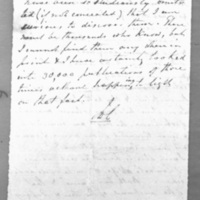 been so studiously
(if not concealed) that I am
anxious to discover them. There
must be thousands who know, but
I cannot find them any where in
print & I have certainly looked
into 30,000 publications of the
times without happening to light
on that fact.